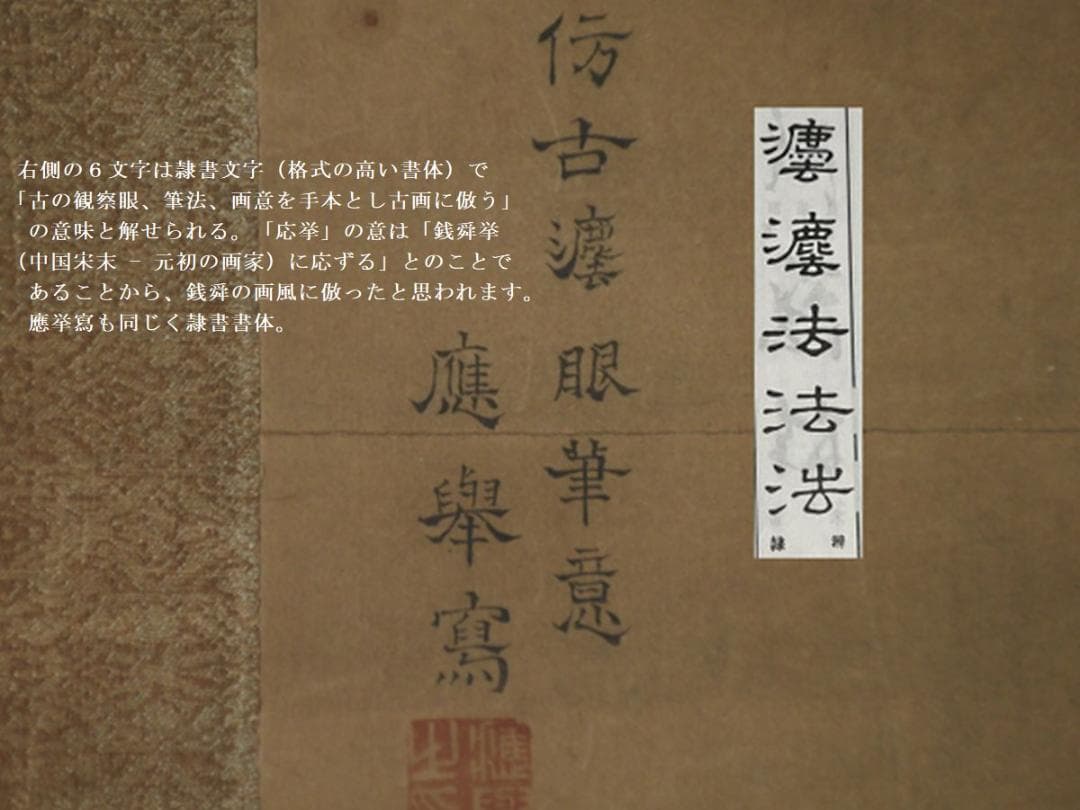 右側の6文字は隷書文字（格式の高い書体）で
「古の観察眼、筆法、画意を手本とし古画に倣う」
の意味と解せられる。「応挙」の意は「銭舜挙
（中国宋末 − 元初の画家）に応ずる」とのことで
あることから、銭舜の画風に倣ったと思われます。
應挙寫も同じく隷書書体。
仿古灋眼筆意
應舉寫
灋灋法法法
隷